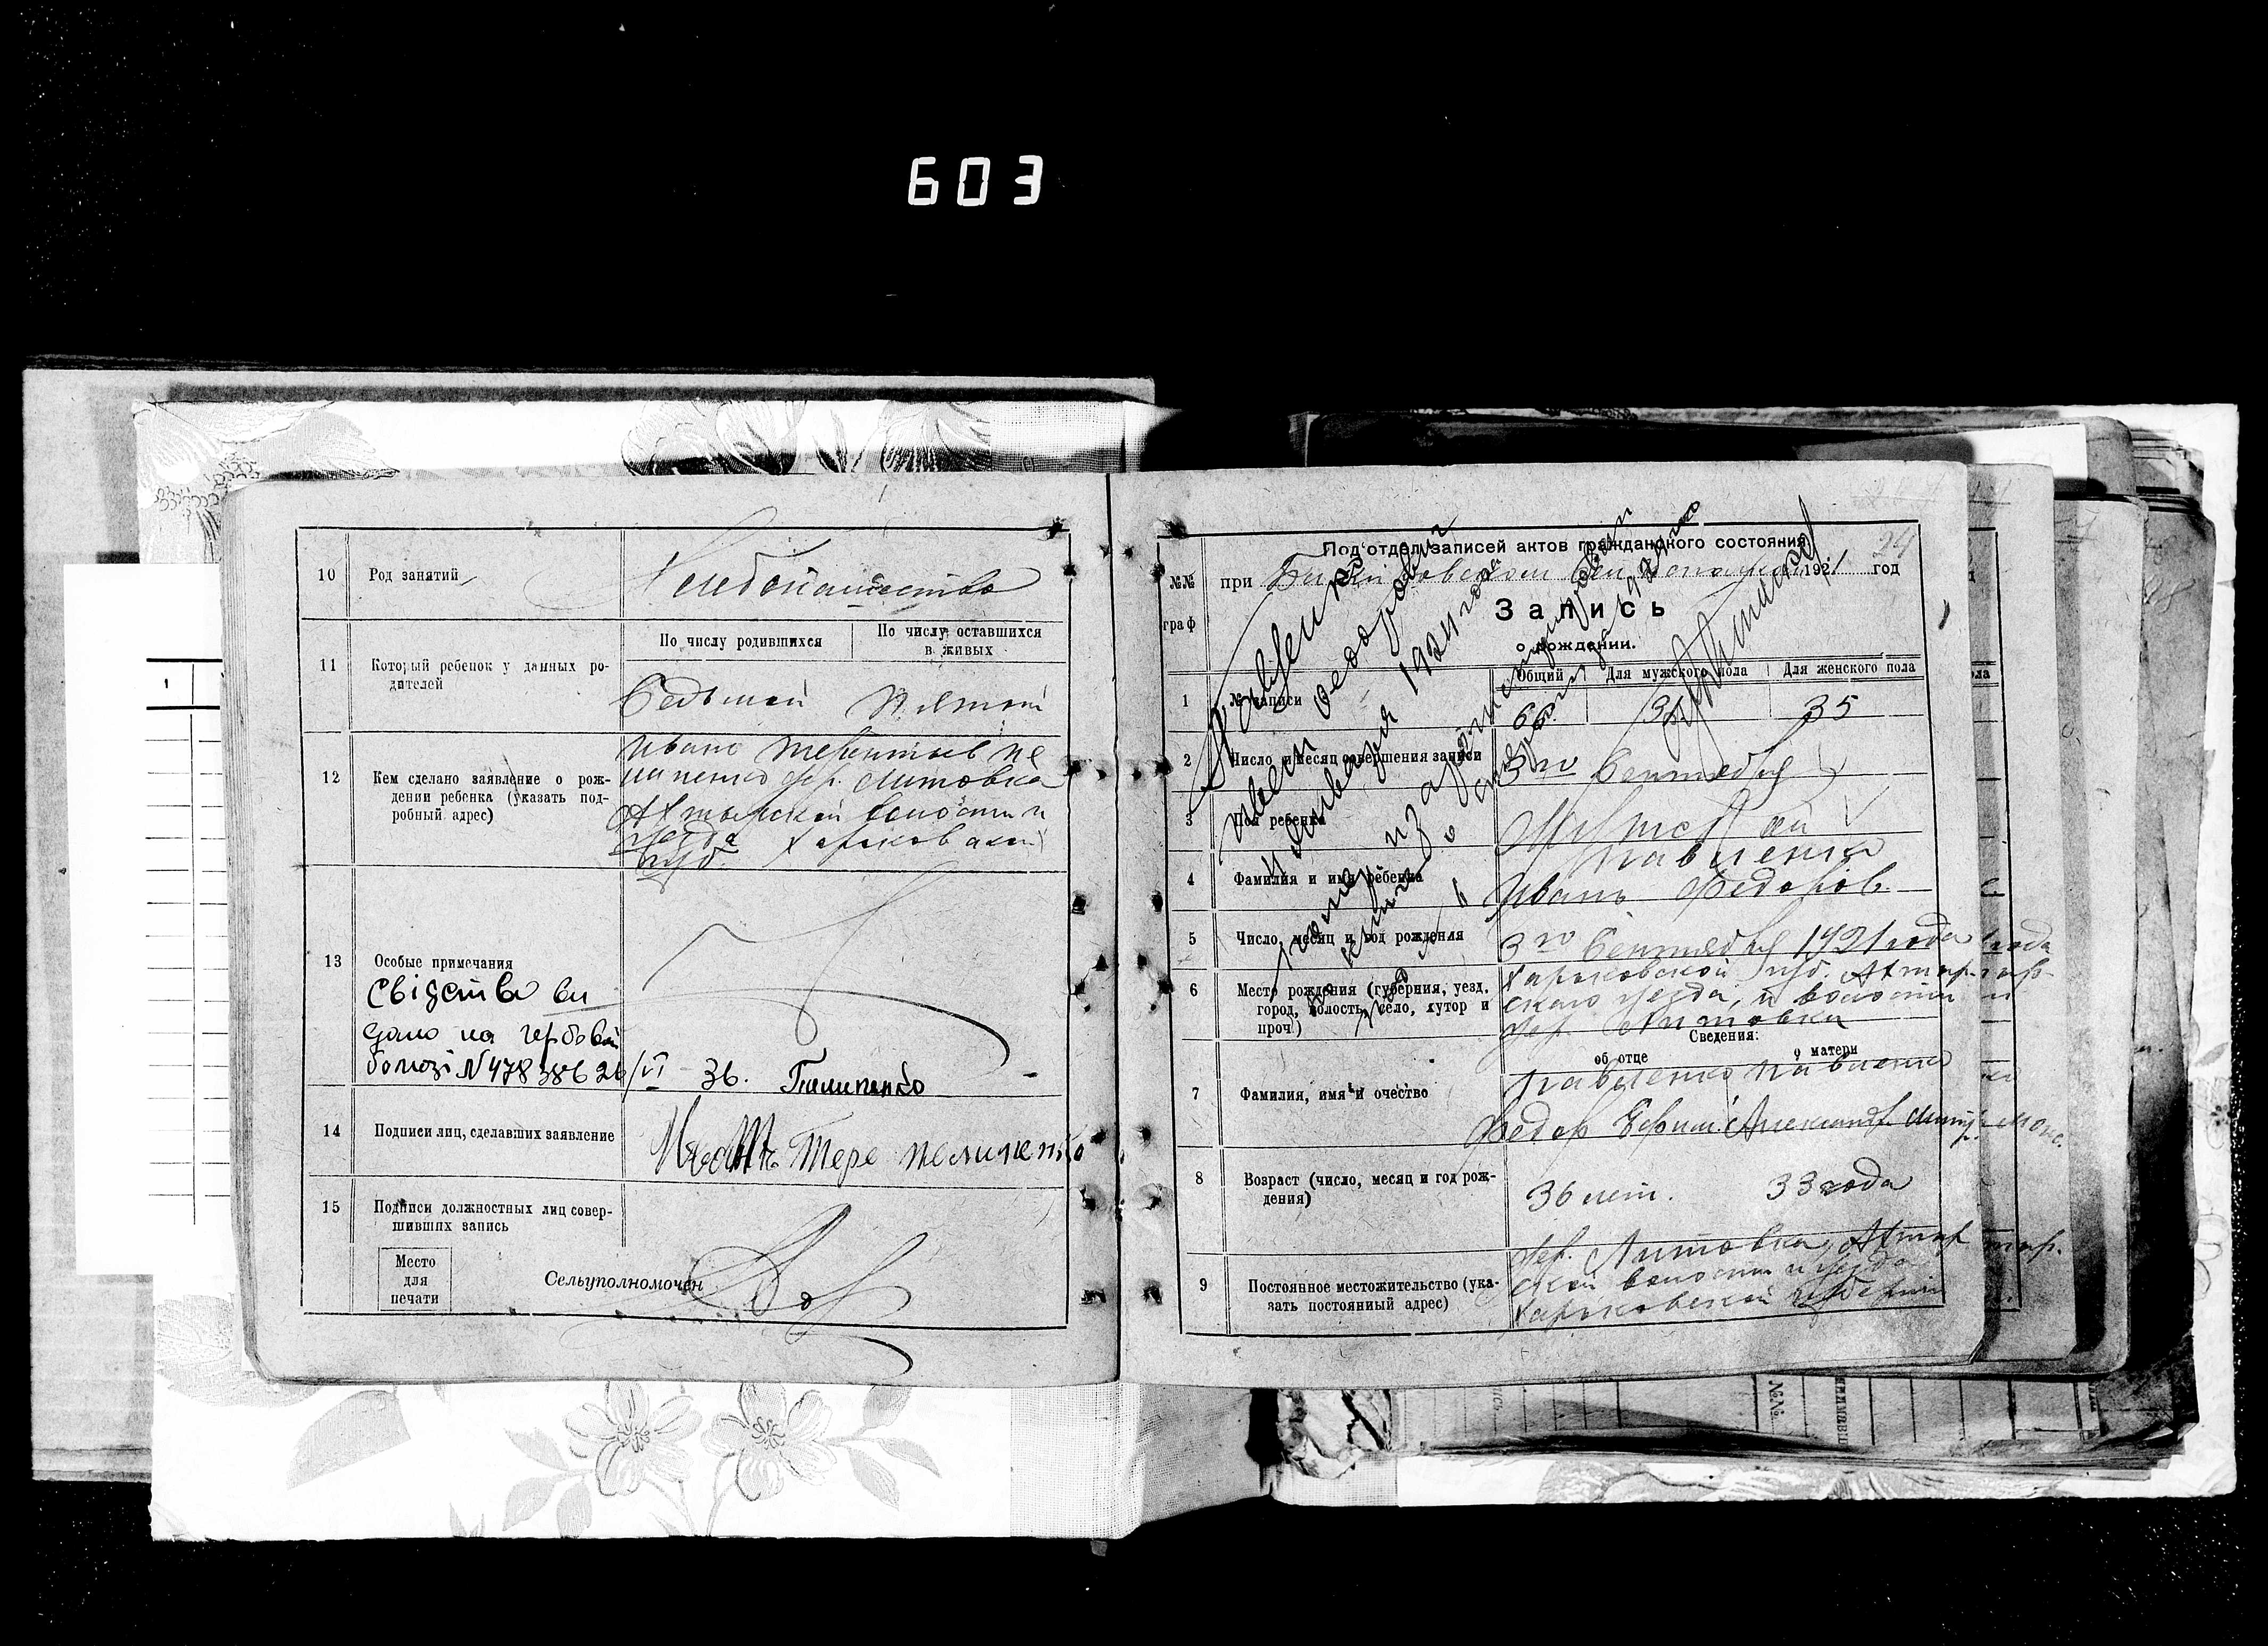 603
10
Род занятий
Хлебопашество
11
Который ребенок у данных ро-
дителей
По числу родившихся
По числу оставшихся
в живых
Седьмой
Пятый
12
Кем сделано заявление о рож-
дении ребенка (указать под-
робный адрес)
Иване Терентьев Пе
липенко дер. Литовка
Ахтырской волости и
уезда Харьковской
губ.
13
Особые примечания
Свідетво ви
дано на гербовой
бомазі N 478386 26/VI - 36. Пилипенко
14
Подписи лиц, сделавших заявление
Иванъ Тере Пелипенко
15
Подписи должностных лиц совер-
шивших запись
Место
для
печати
Сельуполномочен
24
Под'отдел записей актов гражданского состояния
№№
граф
при
1921 год
Запись
о рождении.
Общий
Для мужского пола
Для женского пола
1
№ записи
66
31
35
2
Число и месяц совершения записи
3го Сентября
3
Пол ребенка
Мужской
4
Фамилия и имя ребенка
Павленко
Иванъ Федоров.
5
Число, месяц и год рождения
3го Сентября 1921 года
6
Место рождения (губерния, уезд.
город, волость, село, хутор и
проч.)
Харьковской губ. Ахтыр-
скаго уезда, и волости
дер. Литовки
Сведения:
об отце
о матери
7
Фамилия, имя и очество
Павленко
Павленко
Федор Ефим.
Александ. Дмитр.
8
Возраст (число, месяц и год рож-
дения)
36 лет.
33 года
9
Постоянное местожительство (ука-
зать постоянный адрес)
дер. Литовка, Ахтыр
ской волости и уезда
Харьковской губернии
Павленко
Иван Федорович
января 1924 года